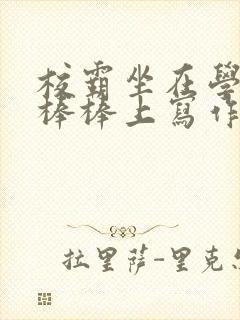 校霸坐在學
棒棒上寫作
拉里薩-里克